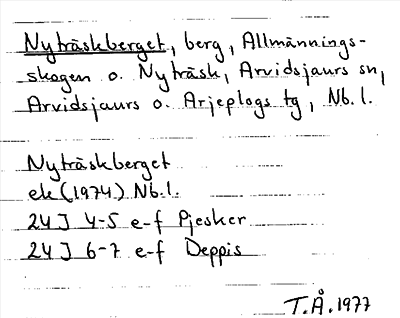 Nyträskberget, berg, Allmännings-
skogen o. Nyträsk, Arvidsjaurs sn,
Arvidsjaurs o. Arjeplogs tg, Nb. l.
Nyträskberget
ek (1974) Nb.l.
24J 4-5 e-f Pjesker
24J 6-7 e-f Deppis
T.Å. 1977